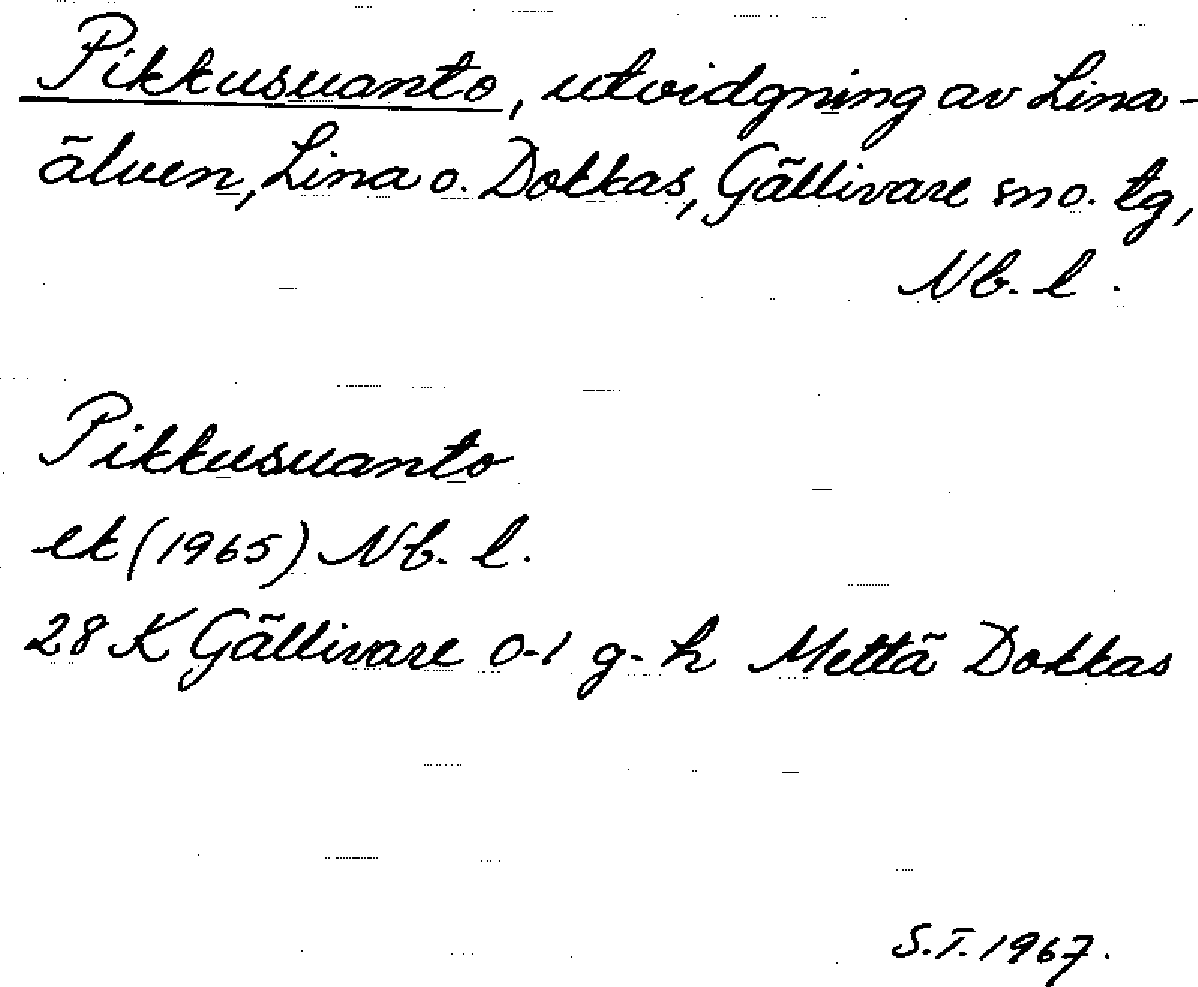 Pikkusuanto, utvidgning av Lina-
älven, Lina o. Dokkas, Gällivare sn o. tg,
Nb. l.
Pikkusuanto
ek (1965) Nb. l.
28 K Gällivare 0-1 g-h Mettä Dokkas
S.T. 1967.